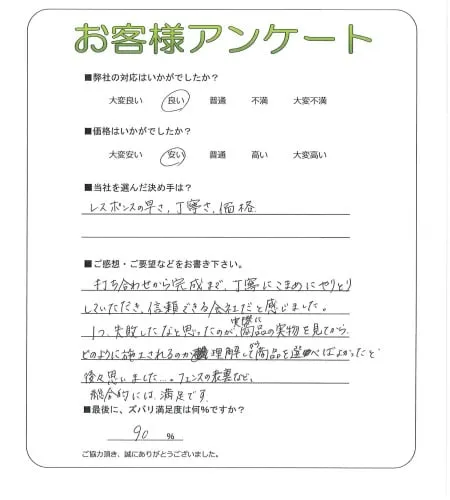 お客様アンケート
■弊社の対応はいかがでしたか？
大変良い 良い 普通 不満 大変不満
■価格はいかがでしたか？
大変安い 安い 普通 高い 大変高い
■当社を選んだ決め手は？
レスポンスの早さ、丁寧さ、価格
■ご感想・ご要望などをお書き下さい。
打ち合わせから完成まで、丁寧にこまめにやりとり
していただき、信頼できる会社だと感じました。
1つ、失敗したなと思ったのが、実際に商品の実物を見てから、
どのように施工されるのか理解してから商品を選べばよかったと
後々思いました…。フェンスの表裏など。
総合的には、満足です。
■最後に、ズバリ満足度は何%ですか？
90 %
ご協力頂き、誠にありがとうございました。